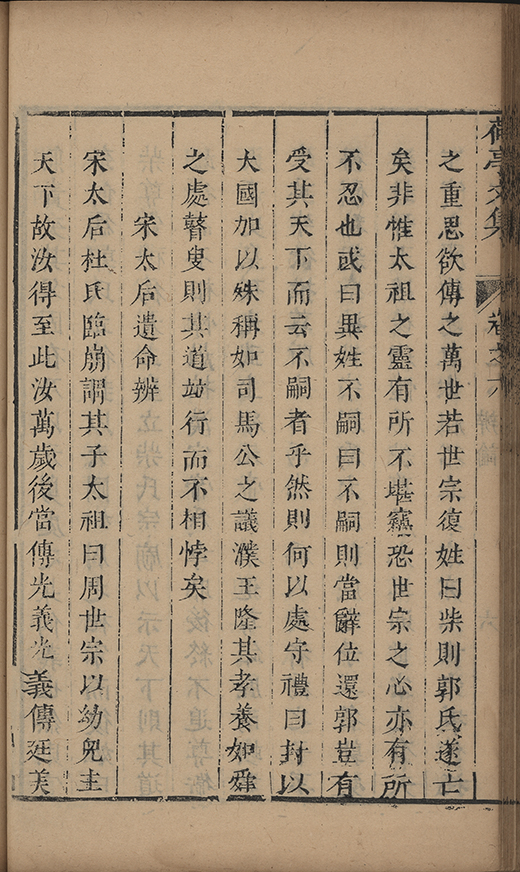 荷亭文集 卷之六
之重思欲傳之萬世若世宗復姓曰柴則郭氏遂亡
矣非惟太祖之靈有所不堪竊恐世宗之心亦有所
不忍也或曰異姓不嗣曰不嗣則當辭位還郭豈有
受其天下而云不嗣者乎然則何以處守禮曰封以
大國加以殊稱如司馬公之議濮王隆其孝養如舜
之處瞽叟則其道竝行而不相悖矣
宋太后遺命辨
宋太后杜氏臨崩謂其子太祖曰周世宗以幼兒主
天下故汝得至此汝萬歲後當傳光義光義傳廷美